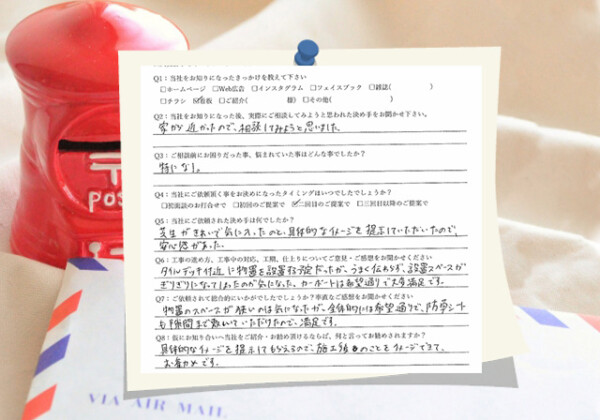 Q1：当社をお知りになったきっかけを教えて下さい
□ホームページ □Web広告 □インスタグラム □フェイスブック □雑誌( )
□チラシ ☑看板 □ご紹介( 様) □その他( )
Q2：当社をお知りになった後、実際にご相談してみようと思われた決め手をお聞かせ下さい。
家から近かったので、相談してみようと思いました。
Q3：ご相談前にお困りだった事、悩まれていた事はどんな事でしたか？
特になし。
Q4：当社にご依頼頂く事をお決めになったタイミングはいつでしたでしょうか？
□初回のご提案で ☑二回目のご提案で □三回目以降のご提案で
Q5：当社にご依頼された決め手は何でしたか？
芝生がきれいで気に入ったのと、具体的なイメージを提示していただいたので、
安心感があった。
Q6：工事の進め方、工事中の対応、工期、仕上りについてご意見・ご感想をお聞かせください
タイルデッキ付近に物置を設置する予定だったが、うまく伝わらず、設置スペースが
ぎりぎりになってしまったのが気になった。カーポートは希望通りで大変満足です。
Q7：ご依頼されて総合的にいかがでしたでしょうか？率直なご感想をお聞かせください
物置のスペースが狭いのは気になったが、全体的には希望通りで、防草シート
も隙間まで敷いていただけたので、満足です。
Q8：仮にお知り合いへ当社をご紹介・お勧め頂けるならば、何と言ってお勧めされますか？
具体的なイメージを提示してもらえるので、施工後のことをイメージできて、
おすすめです。
POS
VIA AIR MAIL